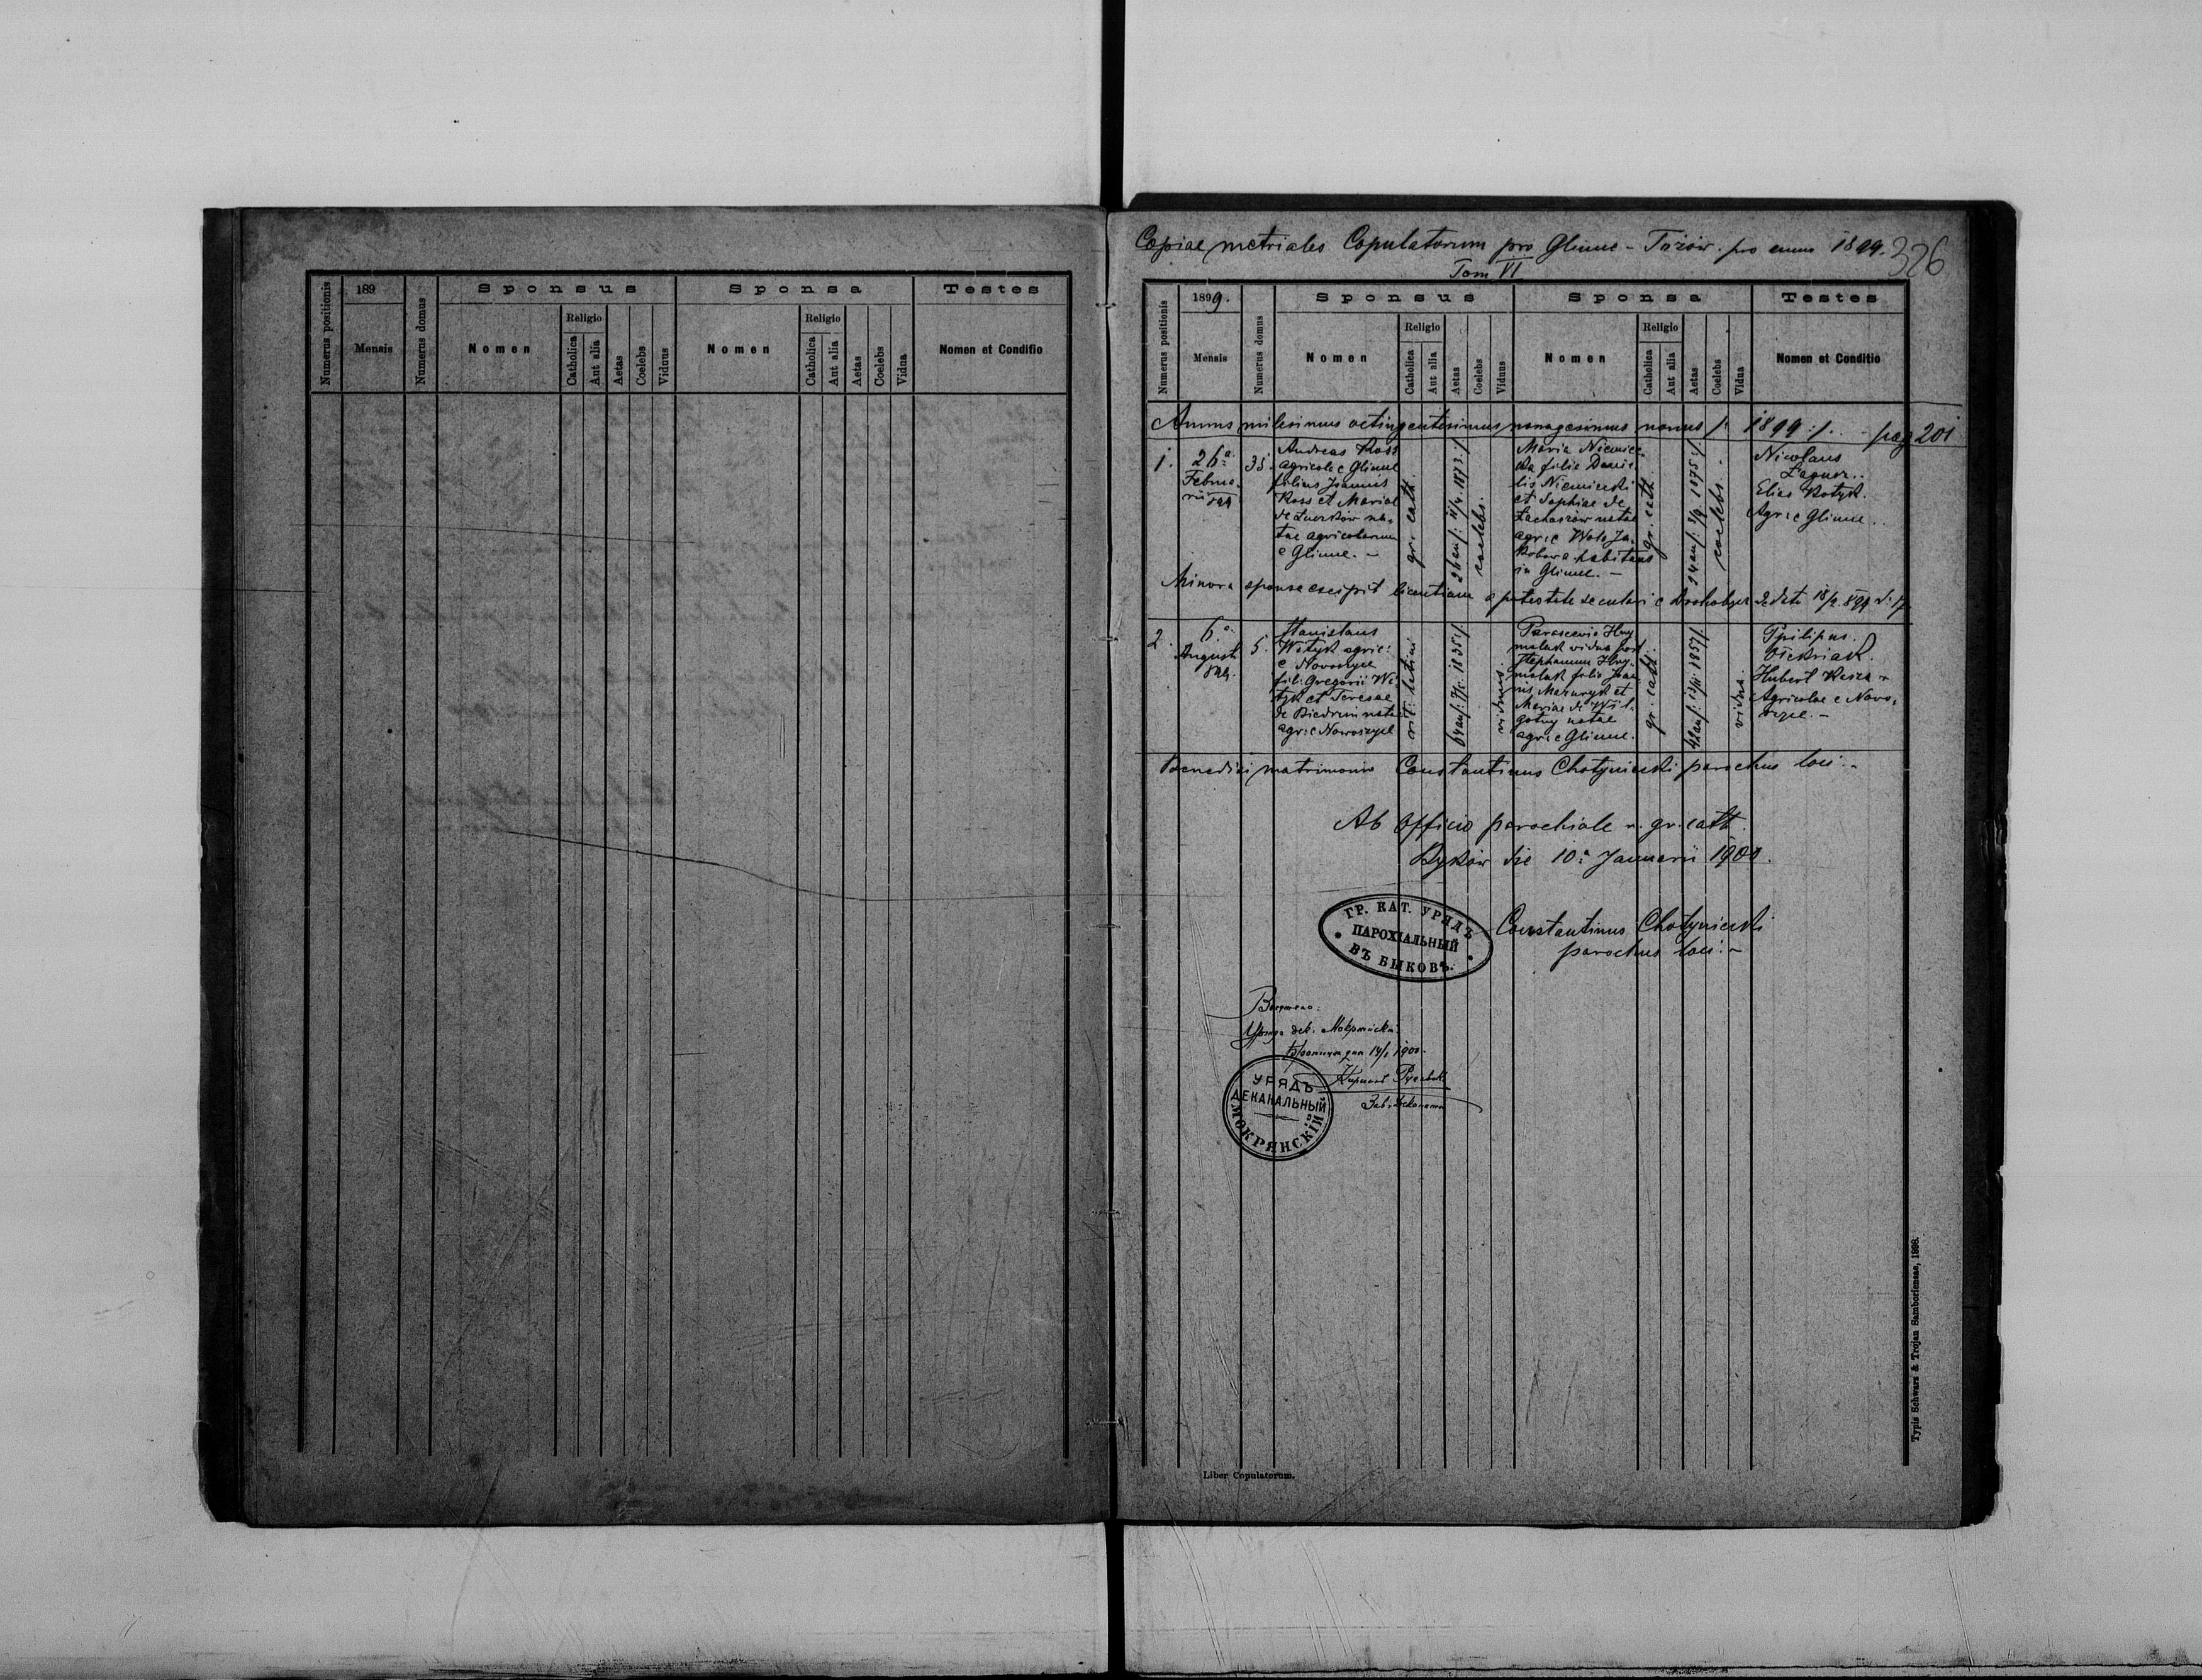 189
Numerus positionis
Mensis
Numerus domus
Sponsus
Nomen
Religio
Catholica
Aut alia
Aetas
Coelebs
Viduus
Sponsa
Nomen
Religio
Catholica
Aut alia
Aetas
Coelebs
Vidua
Testes
Nomen et Condifio
Copiae metriales Copulatorum pro Glinne - Tożów. pro anno 1899.
326
Tom VI
Numerus positionis
1899.
Mensis
Numerus domus
Sponsus
Nomen
Religio
Catholica
Aut alia
Aetas
Coelebs
Viduus
Sponsa
Nomen
Religio
Catholica
Aut alia
Aetas
Coelebs
Vidua
Testes
Nomen et Conditio
Annus milesimus octingentesimus nonagesimus nonus /: 1899 :/. - pag 201
1.
26a
Februa-
rii 899
35.
Andreas Koss
agricola e Glinne
filius Joannis
Koss et Mariae
de
na-
tae agricolarum
e Glinne. -
gr. cath.
26 an /: 11/4. 1873 :/
coelebs.
Maria Niemiec-
ka filia Danie-
lis Niemiecki
et Sophiae de
natae
agr: e Wola Ja-
kubowa habitans
in Glinne. -
gr. cath
coelebs.
Nicolaus
Elias Kotyk.
Agr: e Glinne.
Minora sponsa excipit licentiam a potestate seculari e Drohobycz
2
6a
Augusti
899.
5.
Stanislaus
Wityk agric:
e Novoszyce
fil: Gregorii Wi-
tyk et Teresae
de
natae
agr: e Nowoszyce
rit: latini
viduus
Parascevia Hry
malak vidua post
Stephanum Hry-
malak filia Joan
nis Mazuryk et
Mariae de
natae
agr: e Glinne.
gr. cath
vidua.
Philipus.
Hubert
Agricolae e Novo-
szyce. -
Benedixi matrimonia Constantinus Chotyniecki parochus loci. -
Ab Officio parochiale r. gr. cath.
Byków die 10a Januarii 1900.
ГР. КАТ. УРЯДЪ
ПАРОХІАЛЬНЫЙ
ВЪ БЫКОВѢ.
Constantinus Chotyniecki
parochus loci. -
дек.
14/1 1900.
УРЯДЪ
ДЕКАНАЛЬНЫЙ
МОКРЯНСКІЙ
Liber Copulatorum.
Typis Schwarz & Trojan Samboriensae, 1898.